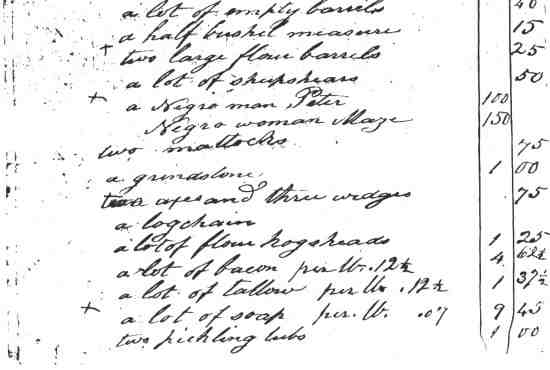 a lot of empty barrels 40
a half bushel measure 15
+ two large flour barrels 25
a lot of sheepshears 50
+ a Negro man Peter 100
Negro woman Maze 150
two mattocks 75
a grindstone 1 00
two axes and three wedges 75
a logchain
a lot of flour hogsheads 1 25
a lot of bacon per lb. 12½ 4 62½
a lot of tallow per lb. .12½ 1 37½
+ a lot of soap per. lb. .07 9 45
two pickling tubs 1 00